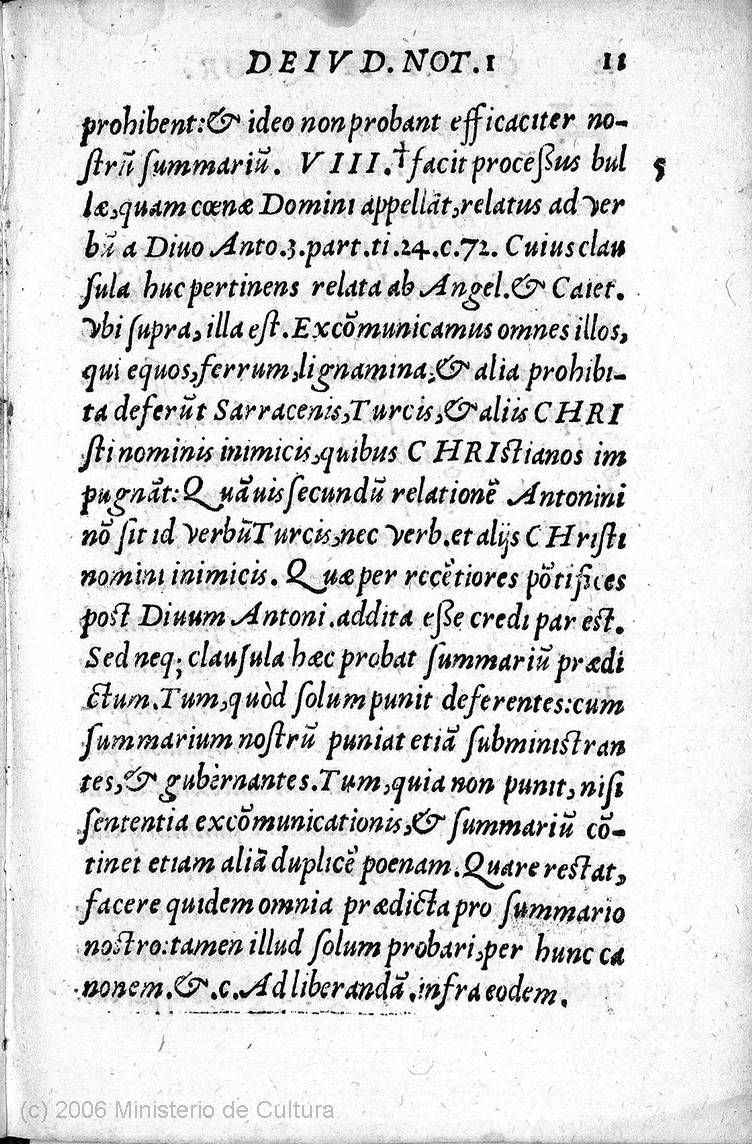 DE IVD. NOT. 1 11
prohibent:& ideo non probant efficaciter no-
strū summariū. VIII.†facit processus bul 5
læ,quam cœnæ Domini appellāt,relatus ad ver
bū a Diuo Anto.3.part.ti.24.c.72. Cuius clau
sula huc pertinens relata ab Angel.& Caiet.
vbi supra,illa est.Excōmunicamus omnes illos,
qui equos,ferrum,lignamina,& alia prohibi-
ta deferūt Sarracenis,Turcis,& aliis CHRI
sti nominis inimicis,quibus CHRIstianos im
pugnāt:Quāuis secundū relationē Antonini
nō sit id verbūTurcis,nec verb.et alijs CHristi
nomini inimicis. Quæ per recētiores pōtifices
post Diuum Antoni.addita esse credi par est.
Sed neq; clausula hæc probat summariū prædi
ctum.Tum,quòd solum punit deferentes:cum
summarium nostrū puniat etiā subministran
tes,& gubernantes.Tum,quia non punit,nisi
sententia excōmunicationis,& summariū cō-
tinet etiam aliā duplicē poenam.Quare restat,
facere quidem omnia prædicta pro summario
nostro:tamen illud solum probari,per hunc ca
nonem.& .c.Ad liberandā.infra eodem.
(c) 2006 Ministerio de Cultura